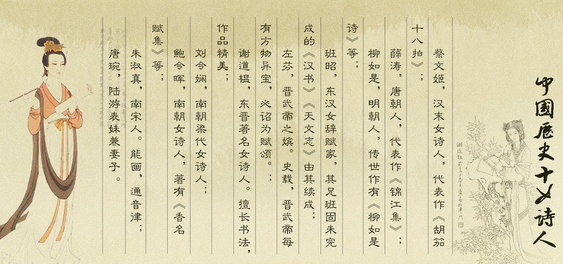 中國歷史十女詩人
蔡文姬，汉末女诗人，代表作《胡笳
十八拍》；
薛涛，唐朝人，代表作《锦江集》；
柳如是，明朝人，传世作有《柳如是
诗》等；
班昭，东汉女辞赋家，其兄班固未完
成的《汉书》《天文志》由其续成；
左芬，晋武帝之嫔。史载，晋武帝每
有方物异宝，必诏为赋颂。；
谢道韫，东晋著名女诗人。擅长书法，
作品精美；
刘令娴，南朝梁代女诗人；
鲍令晖，南朝女诗人，著有《香名
赋集》等；
朱淑真，南宋人。能画，通音律；
唐琬，陆游表妹兼妻子。